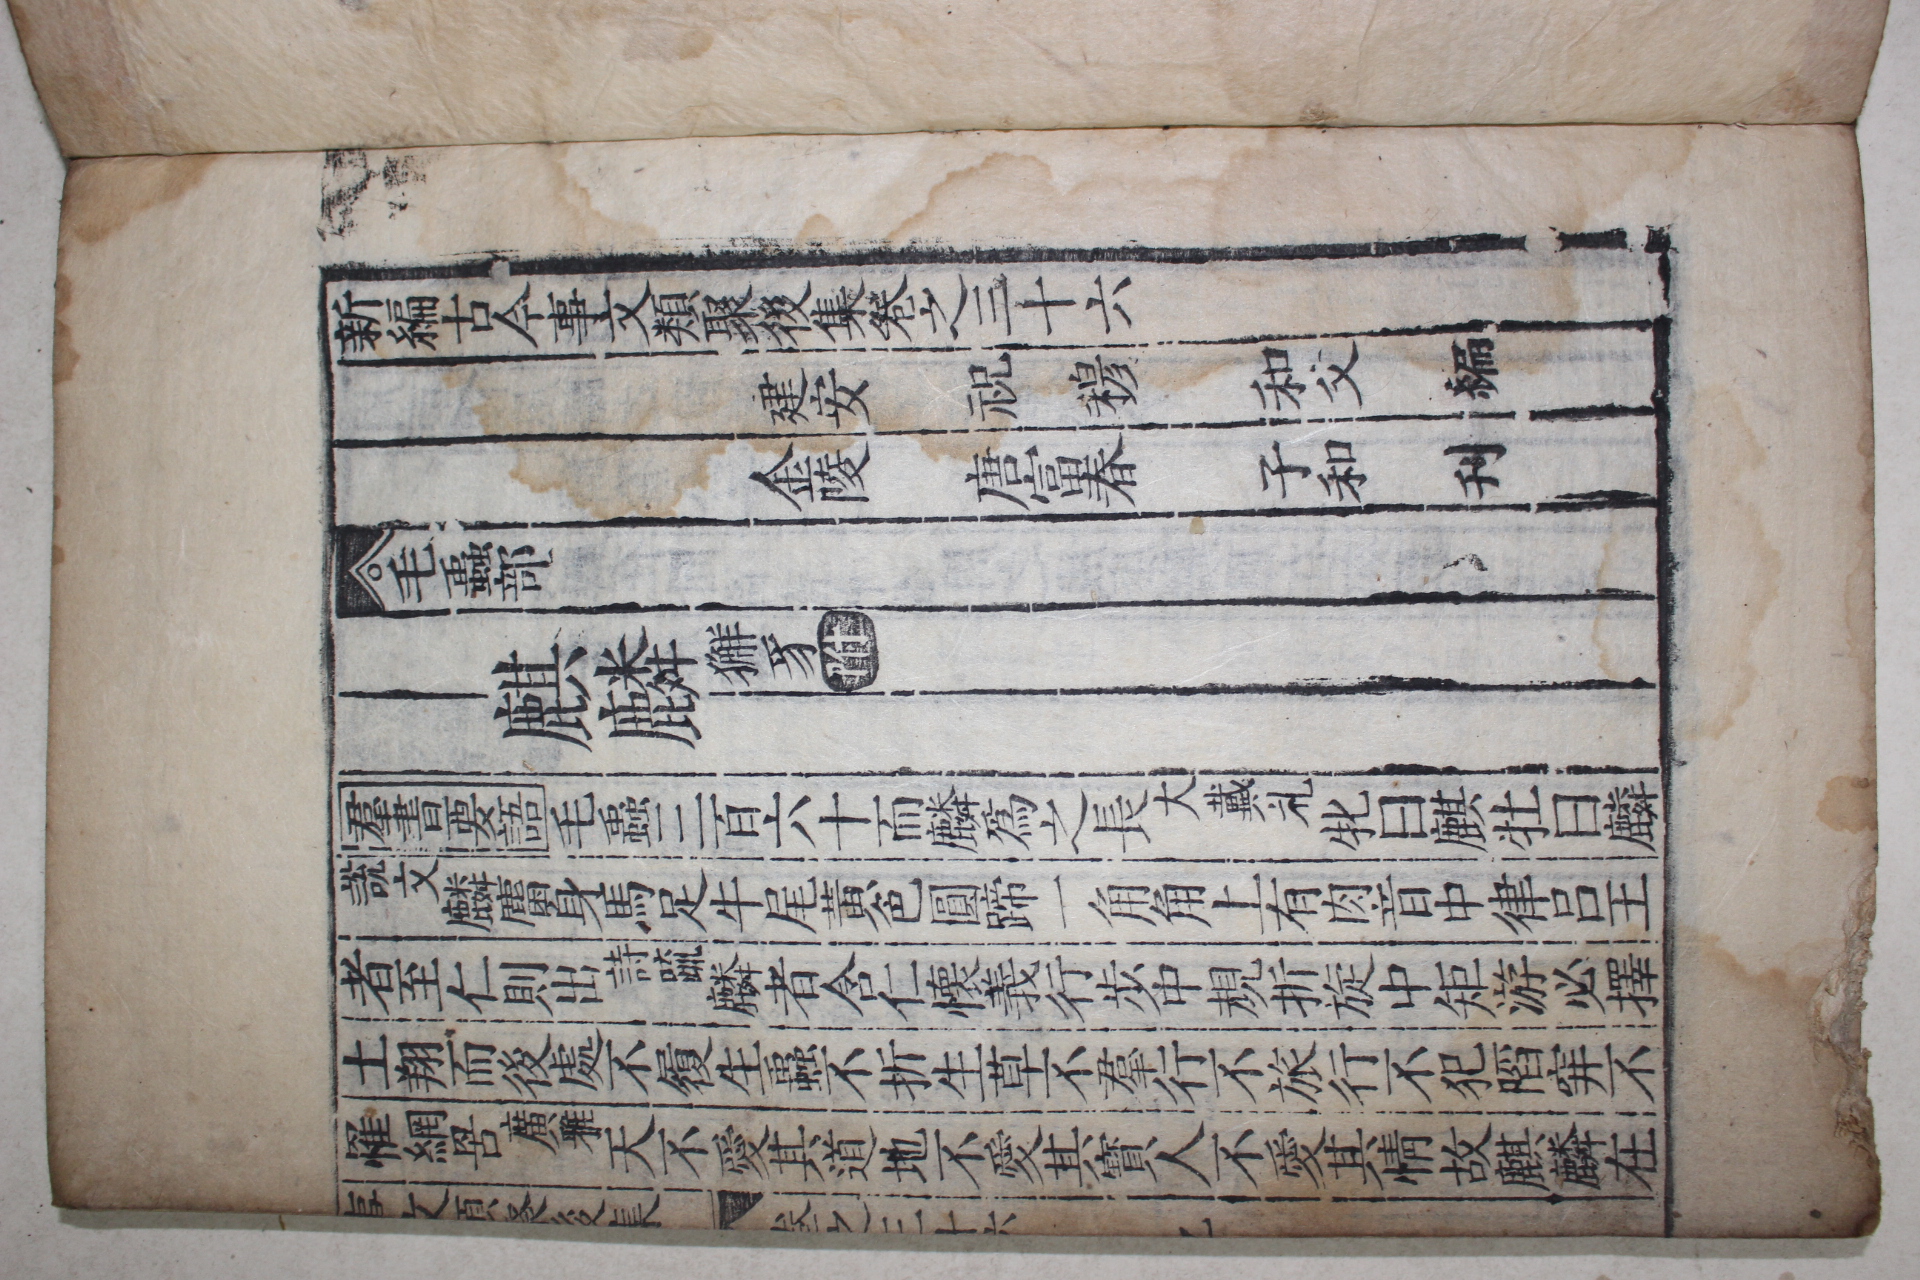 新編古今事文類聚後集卷之三十六
建安 祝 穆 和父 編
金陵 唐富春 子和 刊
毛蟲部
麒麟 獬豸附
羣書要語 毛蟲三百六十而麟爲之長 大戴礼 牝曰麒牡曰麟
說文 麟麕身馬足牛尾黃色圓蹄一角角上有肉音中律呂王
者至仁則出 詩疏 麟者含仁懷義行步中規折旋中矩游必擇
土翔而後處不履生蟲不折生草不羣行不旅行不犯陷穽不
罹網罟 廣雅 天不愛其道地不愛其寶人不愛其情故麒麟在
事文類聚後集 卷之三十六